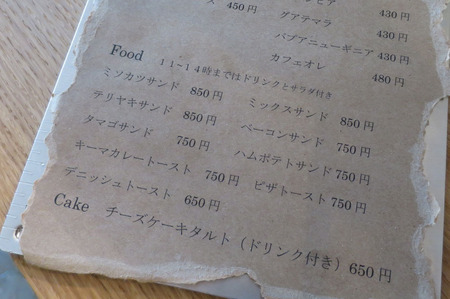 ス 450円
ビア 430円
グアテマラ 430円
パプアニューギニア 430円
カフェオレ 480円
Food 11~14時まではドリンクとサラダ付き
ミソカツサンド 850円 ミックスサンド 850円
テリヤキサンド 850円 ベーコンサンド 750円
タマゴサンド 750円 ハムポテトサンド 750円
キーマカレートースト 750円 ピザトースト 750円
デニッシュトースト 650円
Cake チーズケーキタルト(ドリンク付き) 650円